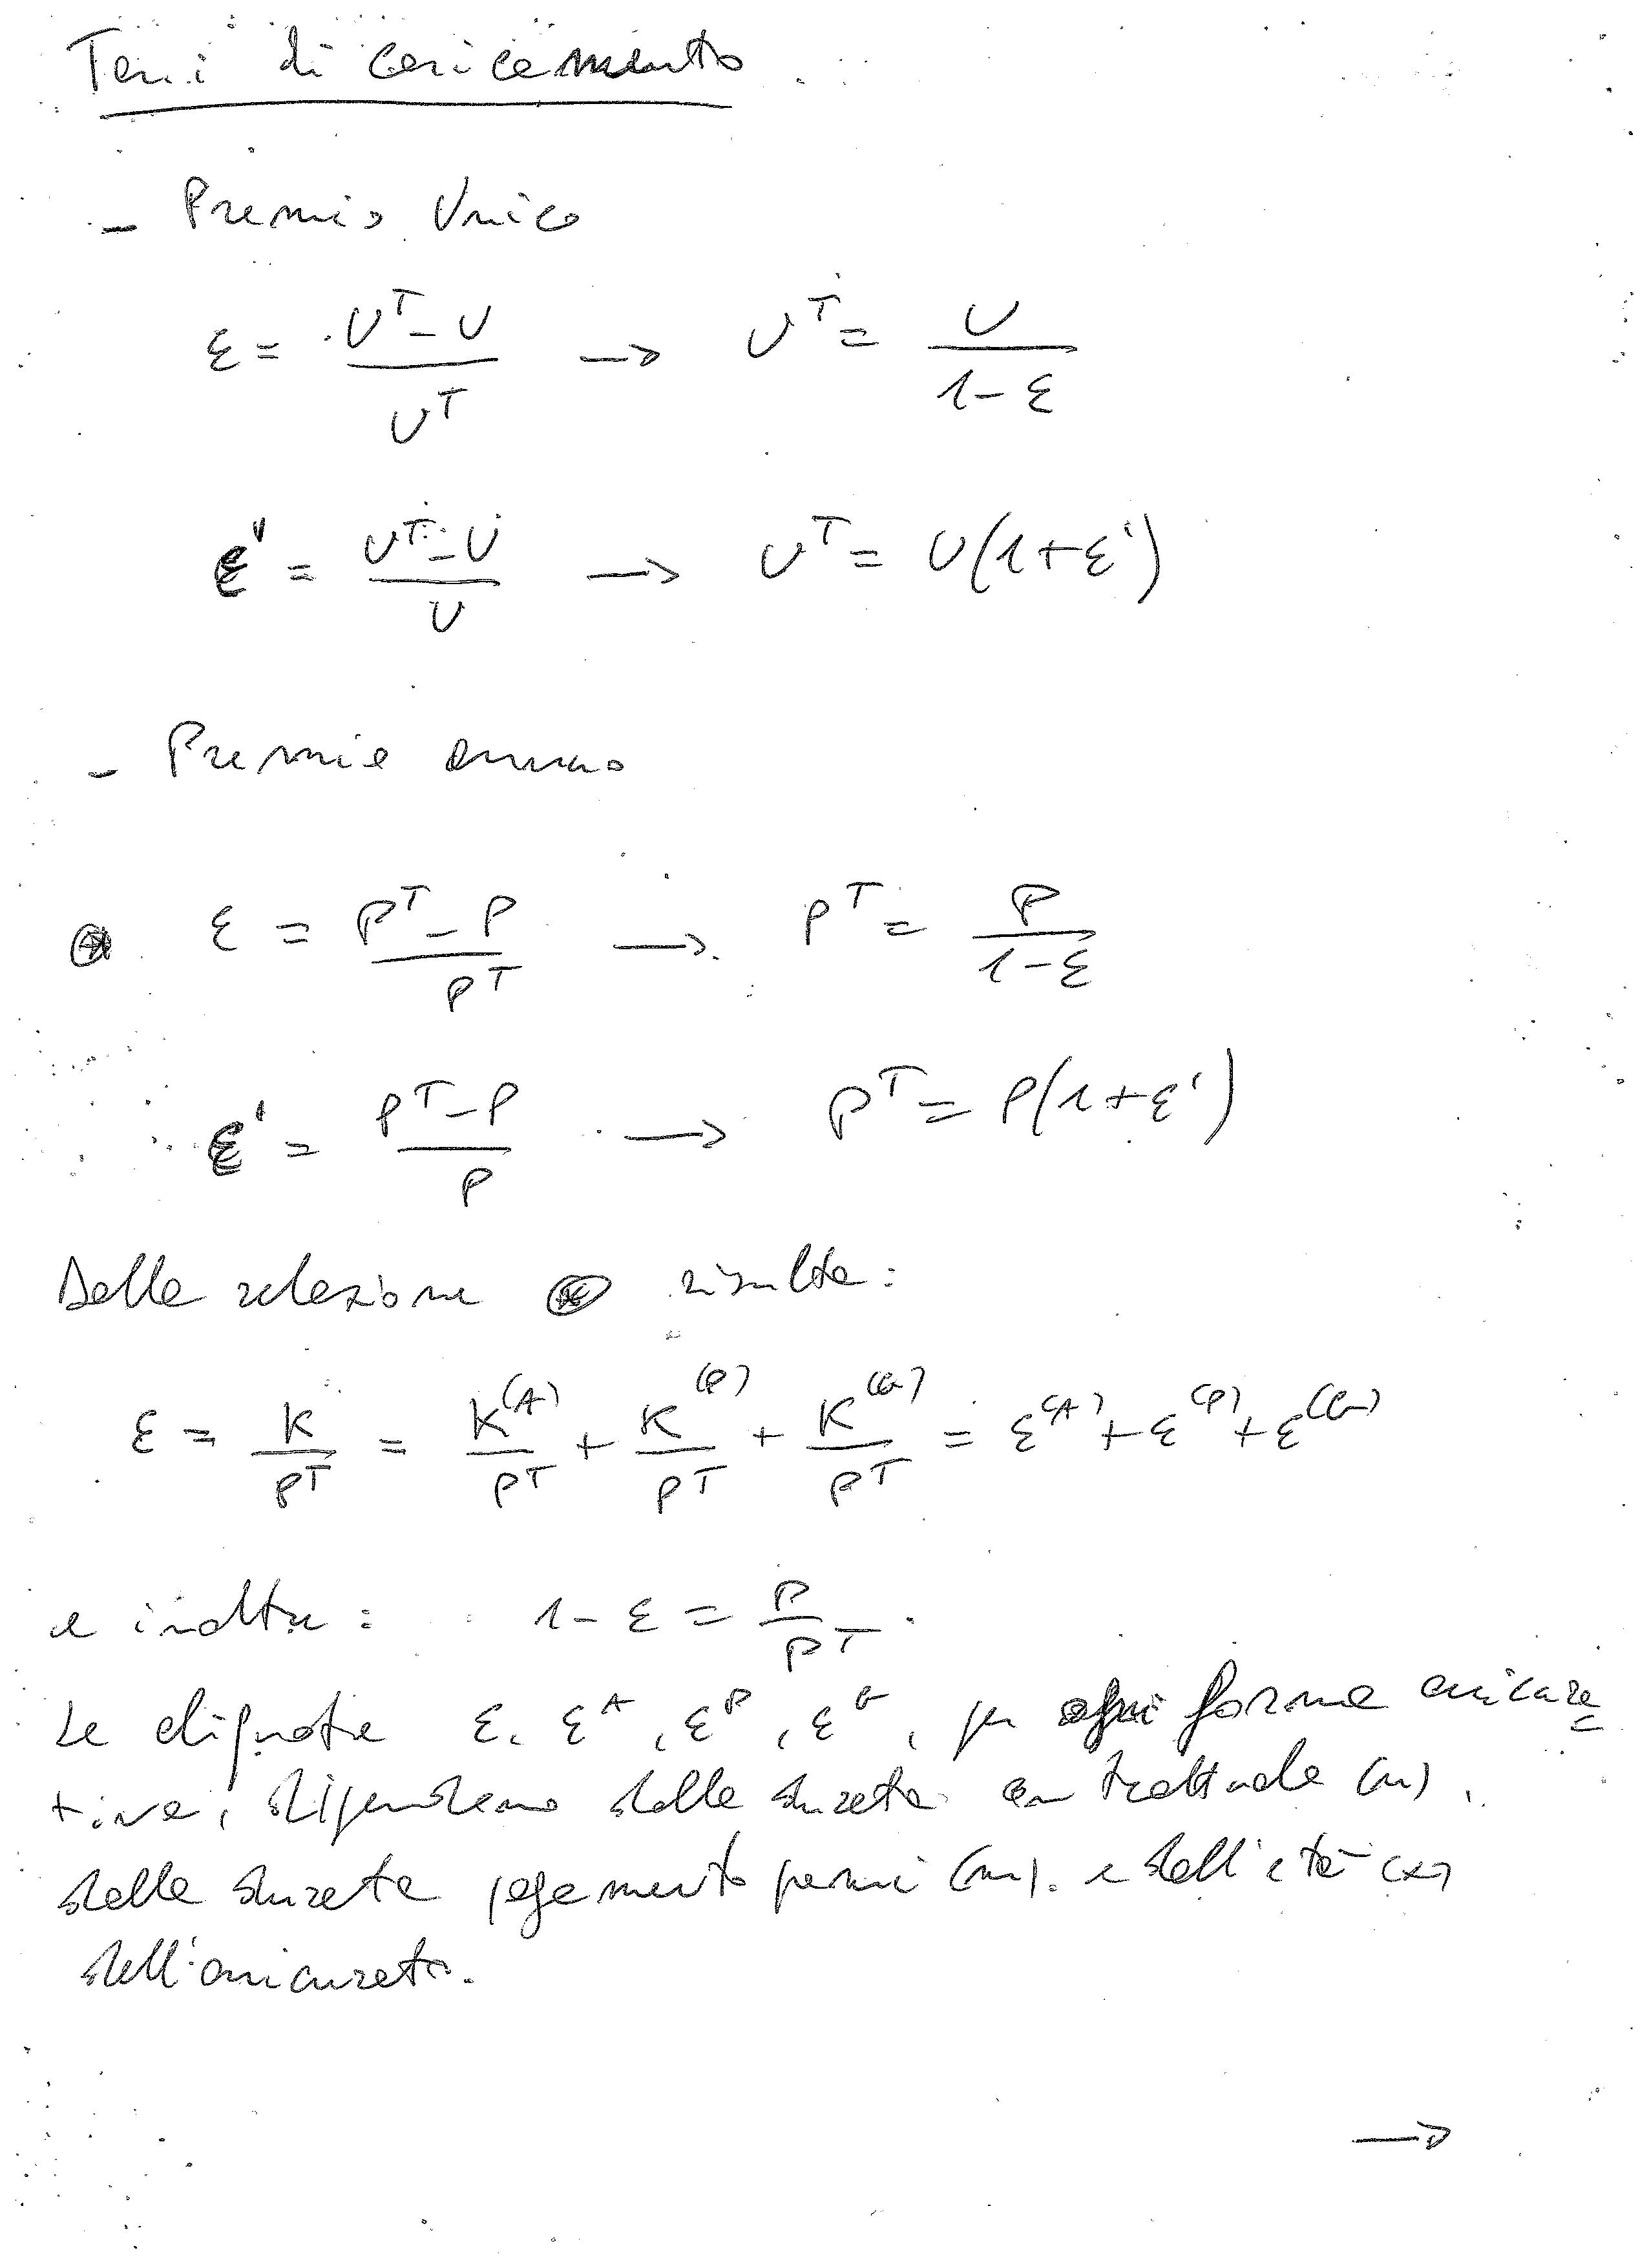 Tassi di caricamento
- Premio Unico
ε = (U^T - U) / U^T → U^T = U / (1-ε)
ε' = (U^T - U) / U → U^T = U(1+ε')
- Premio annuo
⊛ ε = (P^T - P) / P^T → P^T = P / (1-ε)
ε' = (P^T - P) / P → P^T = P(1+ε')
Dalla relazione ⊛ risulta:
ε = K / P^T = K^(A) / P^T + K^(P) / P^T + K^(G) / P^T = ε^(A) + ε^(P) + ε^(G)
e inoltre: 1-ε = P / P^T.
Le aliquote ε, ε^A, ε^P, ε^G, per ogni forma assicura=
tiva, dipendono dalla durata contrattuale (n),
dalla durata pagamento premi (m). e dall'età (x)
dell'assicurato.
→